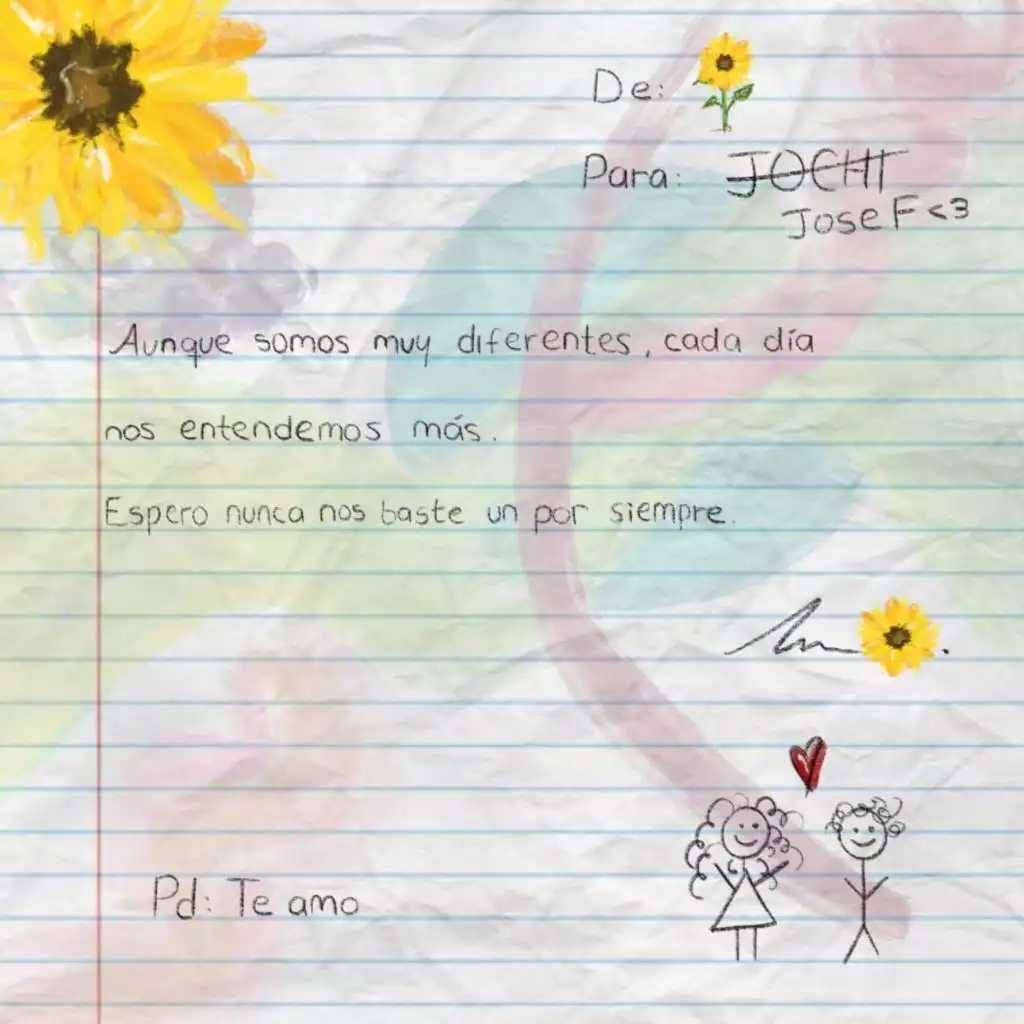 De:
Para: JOCHI
Jose F <3
Aunque somos muy diferentes, cada día
nos entendemos más.
Espero nunca nos baste un por siempre.
Pd: Te amo